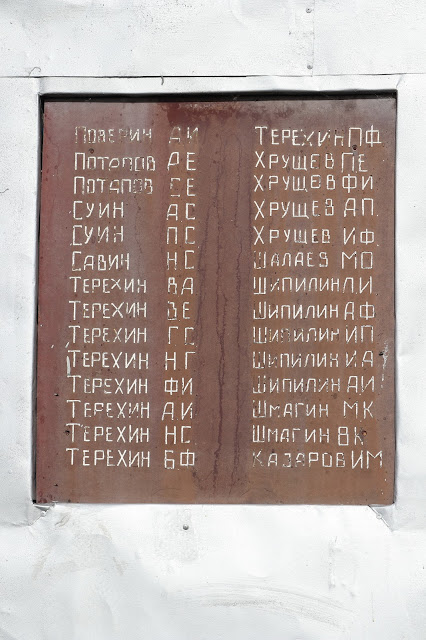 ПОВЕРИН А И
ПОТАПОВ А Е
ПОТАПОВ Е
СУИН А С
СУИН П С
САВИЧ Н С
ТЕРЕХИН В А
ТЕРЕХИН В Е
ТЕРЕХИН Г С
ТЕРЕХИН Н Г
ТЕРЕХИН Ф И
ТЕРЕХИН А И
ТЕРЕХИН Н С
ТЕРЕХИН Б Ф
ТЕРЕХИН П Ф
ХРУЩЕВ П Е
ХРУЩЕВ Ф И
ХРУЩЕВ А П
ХРУЩЕВ И Ф
ШАЛАЕВ М О
ШИПИЛИН П И
ШИПИЛИН А Ф
ШИПИЛИН И П
ШИПИЛИН И А
ШИПИЛИН А И
ШМАГИН М К
ШМАГИН В К
КАЗАРОВ И М